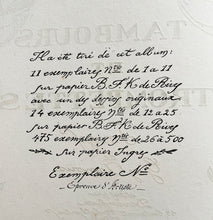 TAMBOURS
Il a été tiré de cet album:
11 exemplaires Nos de 1 à 11
sur papier B.F.K de Rives
avec un des dessins originaux
14 exemplaires Nos de 12 à 25
sur papier B.F.K de Rives
475 exemplaires Nos de 26 à 500
sur papier Ingres
Exemplaire No
Epreuve d'Artiste